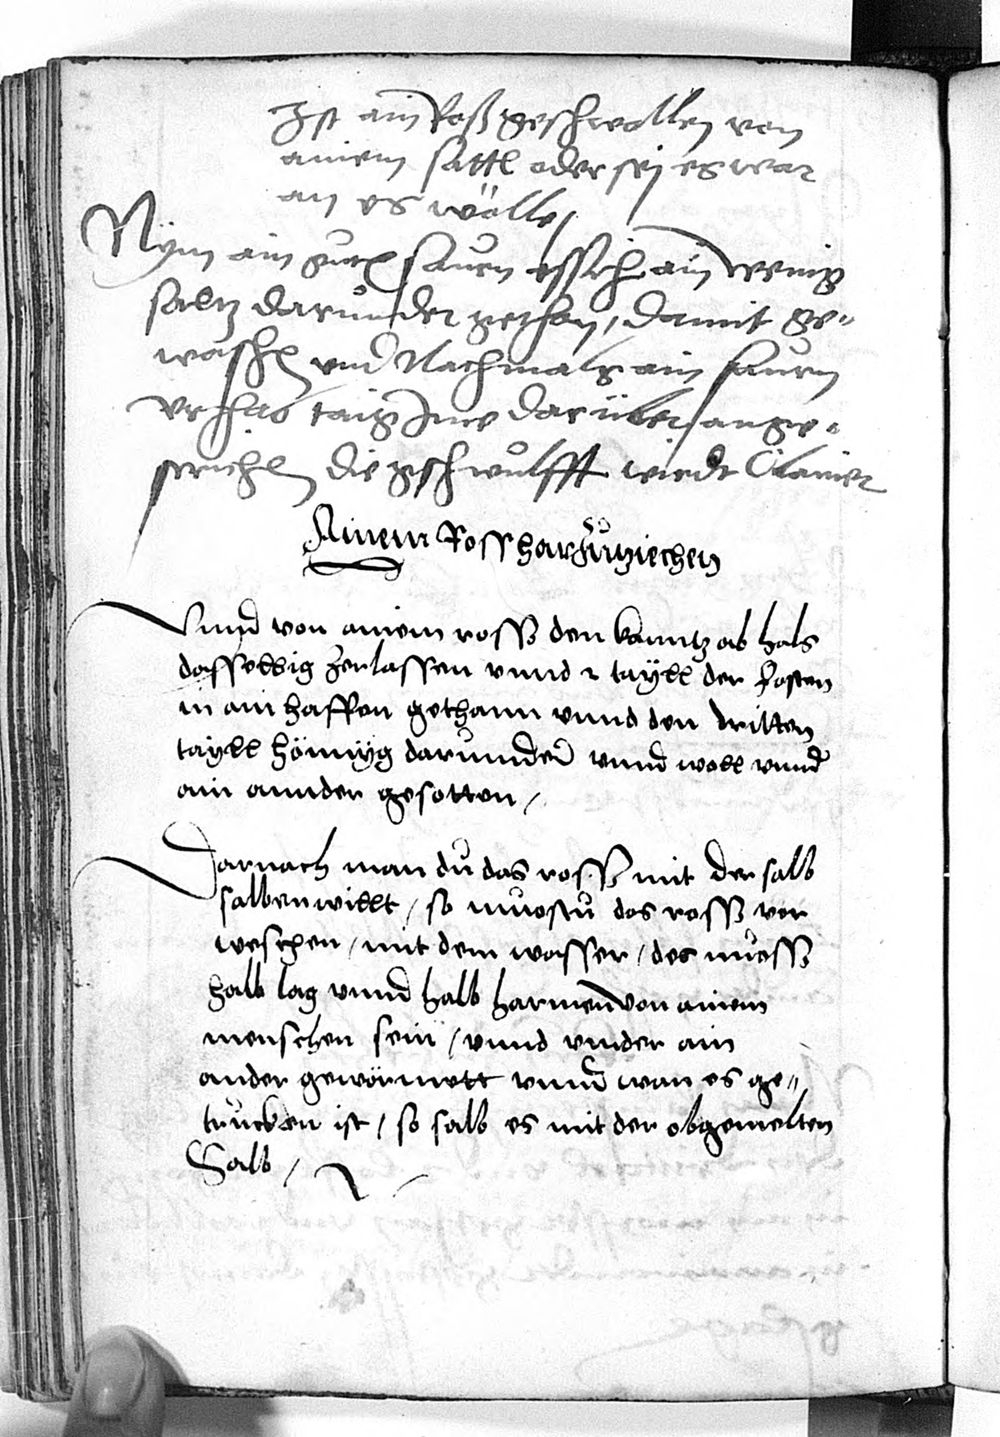 Ist ain Roß geschwollen von
ainem sattl oder sej es war
an es wölle /
Nÿm ain guet saurn essich ain wenig
saltz darunder gethan / damit ge-
waschen vnd Nachmals ain saurn
taig Ime darüber ange-
strichen die gschwulfft wirdt
Ainem Ross har zuziechen
Nimb von ainem ross den kamp ab hals
dasselbig zerlassen vnnd 2 tayll der faisten
in ain haffen gethann vnnd den dritten
tayll hönnyg darunnder vnnd woll vnnd
ain annder gesotten /
Darnach wan du das ross mit der salb
salben willt / so muostu das ross vor
weschen / mit dem wasser / des muess
halb lag vnnd halb harmen von ainem
menschen sein / vnnd vnder ain
ander gewörmett vnnd wan es ge-
trucken ist / so salb es mit der obgemelten
Salb /